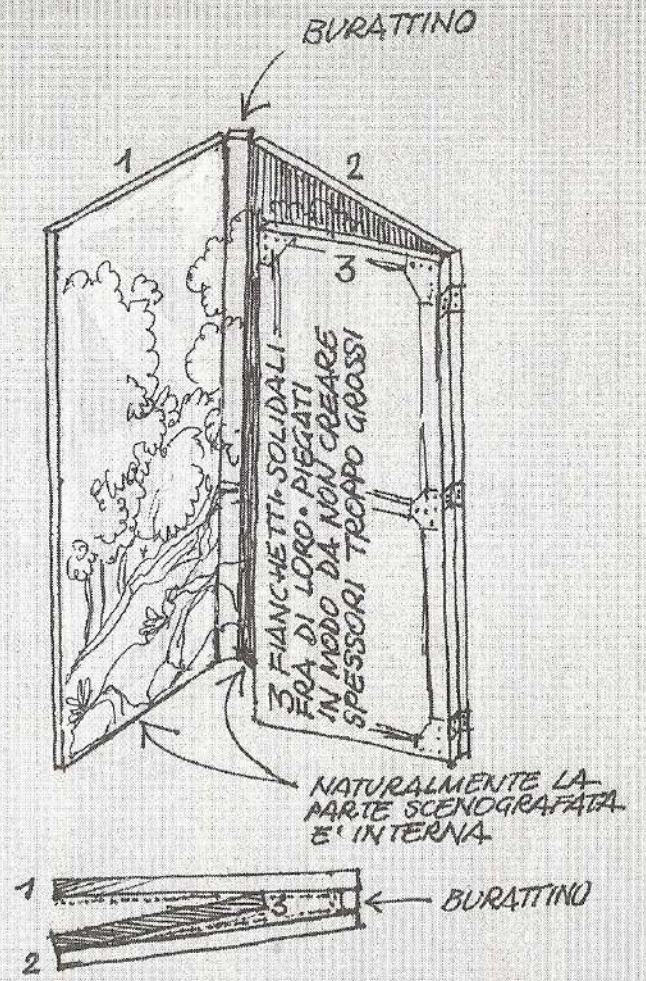 BURATTINO
1
2
3
3 FIANCHETTI SOLIDALI
FRA DI LORO. PIEGATI
IN MODO DA NON CREARE
SPESSORI TROPPO GROSSI
NATURALMENTE LA
PARTE SCENOGRAFATA
E' INTERNA
1
3
BURATTINO
2